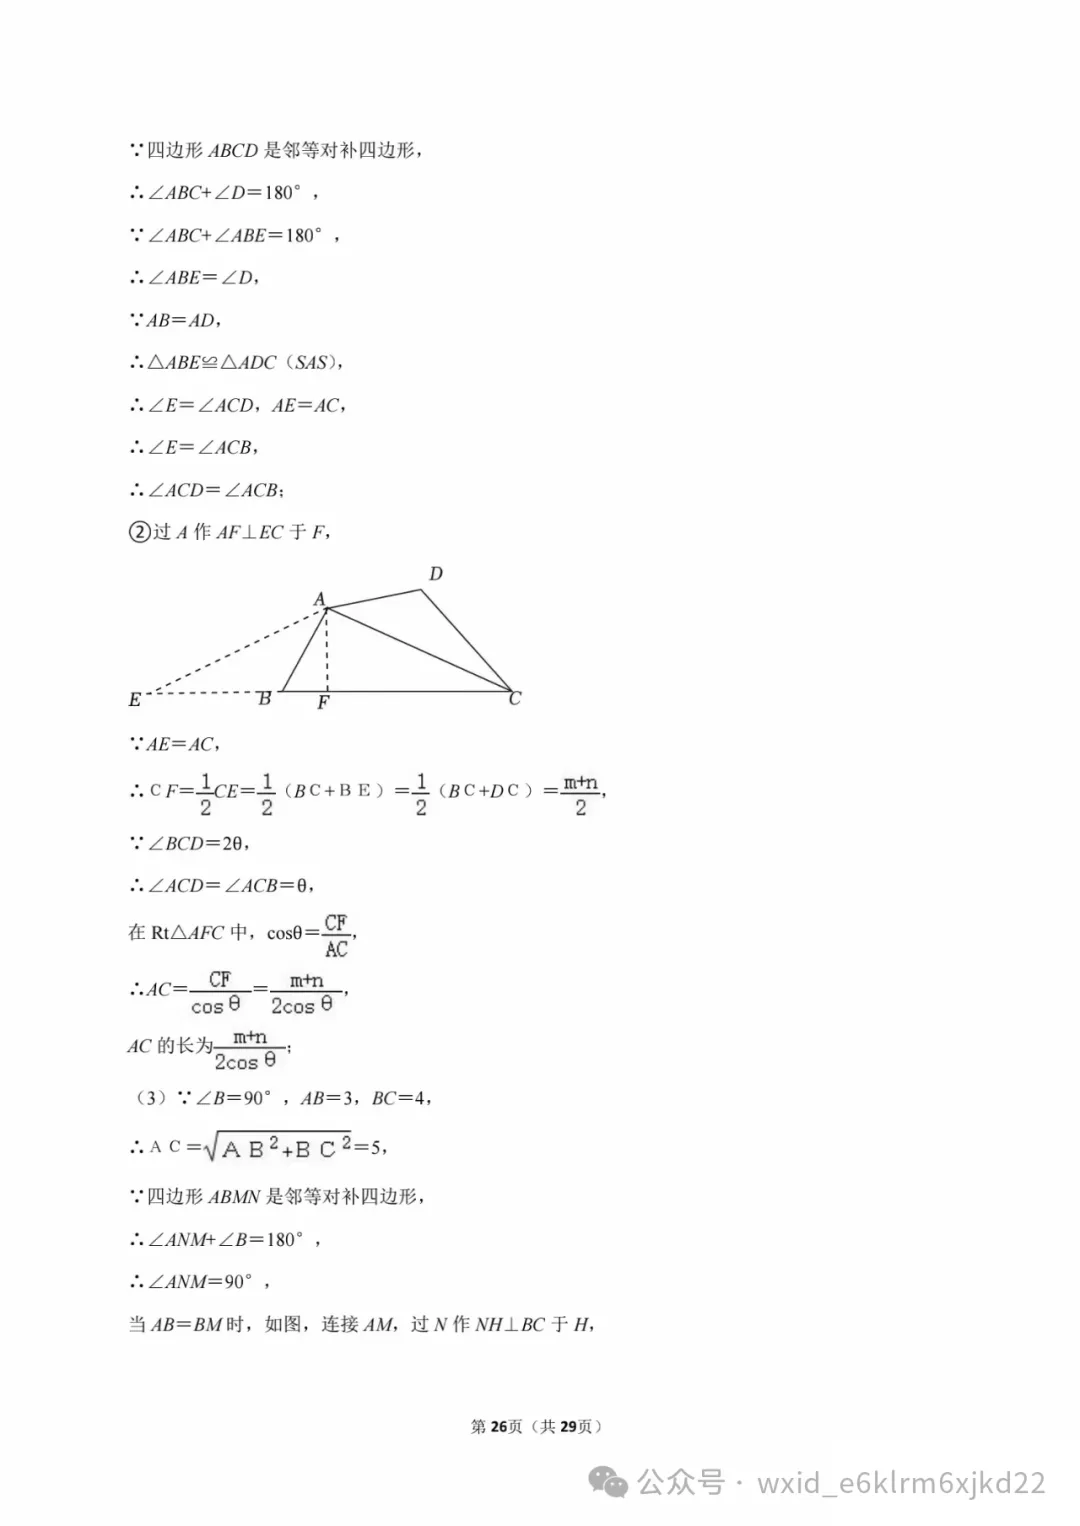 ∵四边形 ABCD 是邻等对补四边形，
∴∠ABC+∠D＝180°，
∵∠ABC+∠ABE＝180°，
∴∠ABE＝∠D，
∵AB＝AD，
∴△ABE≌△ADC（SAS），
∴∠E＝∠ACD，AE＝AC，
∴∠E＝∠ACB，
∴∠ACD＝∠ACB；
②过 A 作 AF⊥EC 于 F，
D
A
E
B
F
C
∵AE＝AC，
∴CF＝1/2CE＝1/2（BC+BE）＝1/2（BC+DC）＝m+n/2，
∵∠BCD＝2θ，
∴∠ACD＝∠ACB＝θ，
在 Rt△AFC 中，cosθ＝CF/AC，
∴AC＝CF/cosθ＝m+n/2cosθ，
AC 的长为m+n/2cosθ；
（3）∵∠B＝90°，AB＝3，BC＝4，
∴AC＝√AB²+BC²＝5，
∵四边形 ABMN 是邻等对补四边形，
∴∠ANM+∠B＝180°，
∴∠ANM＝90°，
当 AB＝BM 时，如图，连接 AM，过 N 作 NH⊥BC 于 H，
第 26页（共 29页）
公众号 · wxid_e6klrm6xjkd22